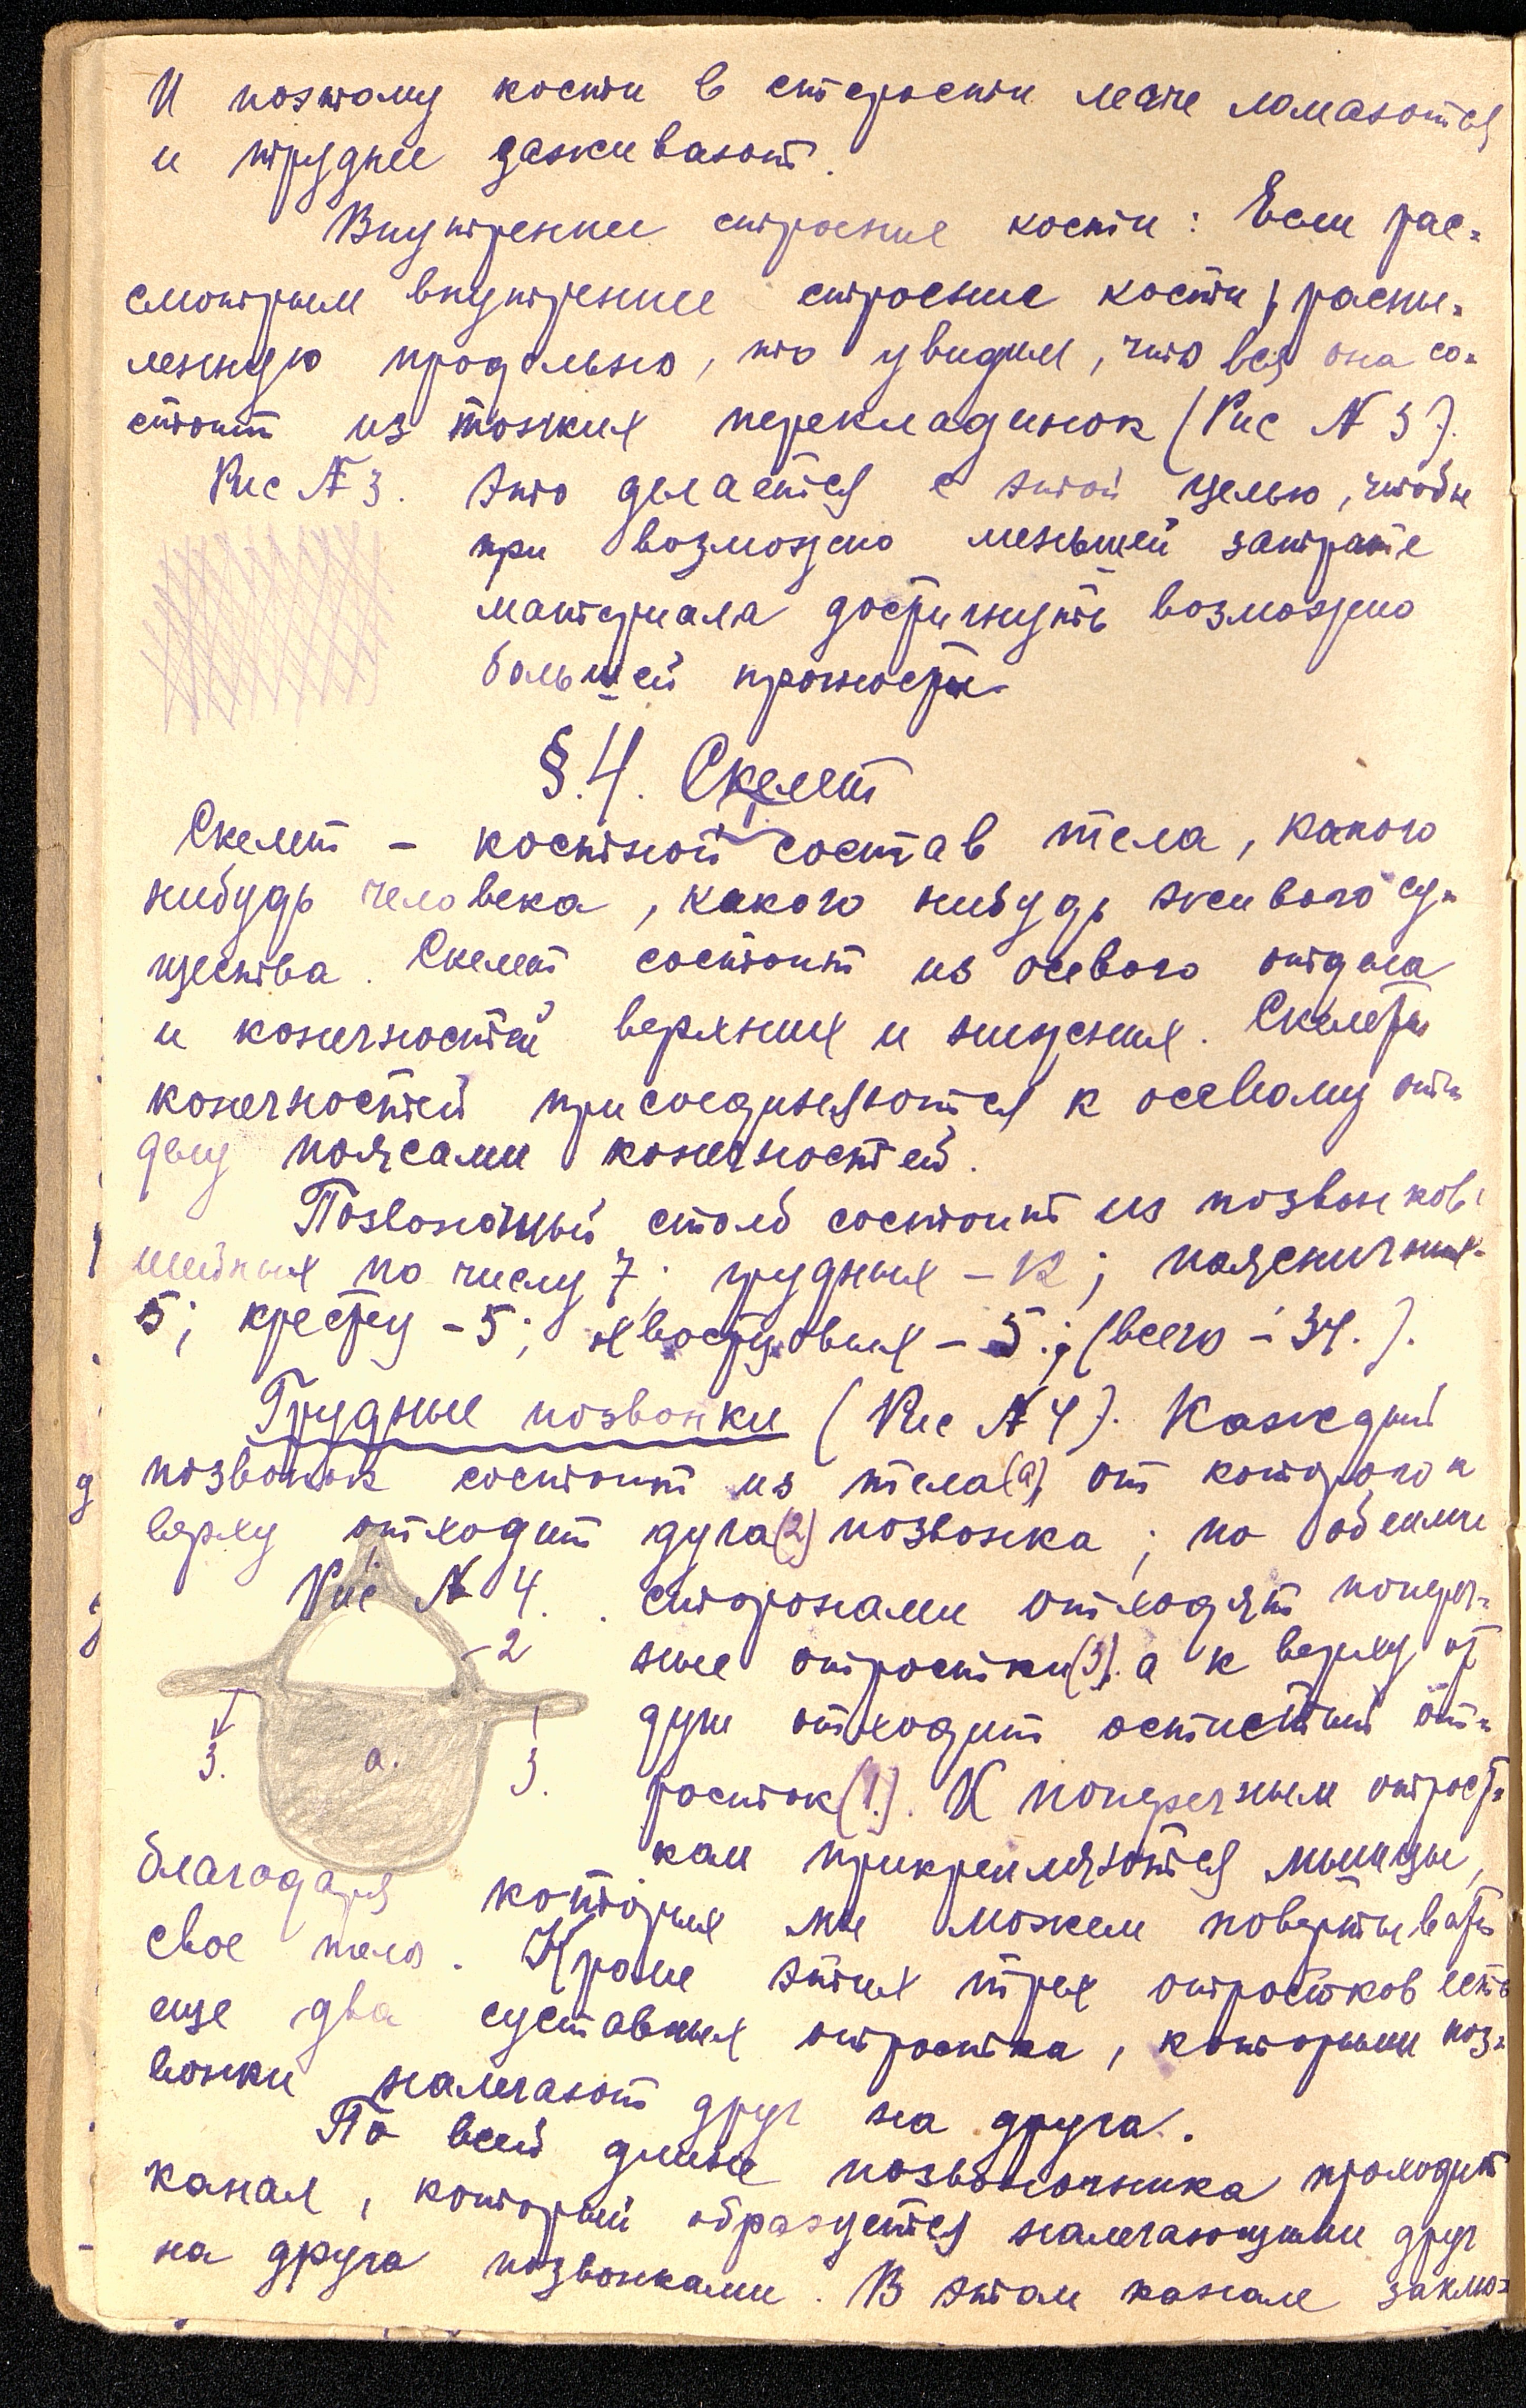 И поэтому кости в старости легче ломаются
и труднее заживают.
Внутреннее строение кости: Если рас-
смотрим внутреннее строение кости, распи-
ленную продольно, то увидим, что вся она со-
стоит из тонких перекладинок (Рис № 3).
Рис № 3. Это делается с этой целью, чтобы
при возможно меньшей затрате
материала достигнуть возможно
большей прочности.
§.4. Скелет
Скелет – костный состав тела, какого
нибудь человека, какого нибудь живого су-
щества. Скелет состоит из осевого отдела
и конечностей верхних и нижних. Скелеты
конечностей присоединяются к осевому от-
делу поясами конечностей.
Позвоночный столб состоит из позвонков:
шейных по числу 7; грудных – 12; поясничных-
5; крестцу – 5; хвостцовых – 5.; (всего – 34.).
Грудные позвонки (Рис № 4). Каждый
позвонок состоит из тела(а), от которого к
верху отходит дуга(2) позвонка; по обеими
Рис № 4. сторонами отходят попереч-
2
ные отростки(3). а к верху от
дуги отходит остистый от-
3. а. 3.
росток(1.). К поперечным отрост-
кам прикрепляются мышцы,
благодаря которых мы можем повертывать
свое тело. Кроме этих трех отростков есть
еще два суставных отростка, которыми поз-
вонки налегают друг на друга.
По всей длине позвоночника проходит
канал, который образуется налегающими друг
на друга позвонками. В этом канале заклю-